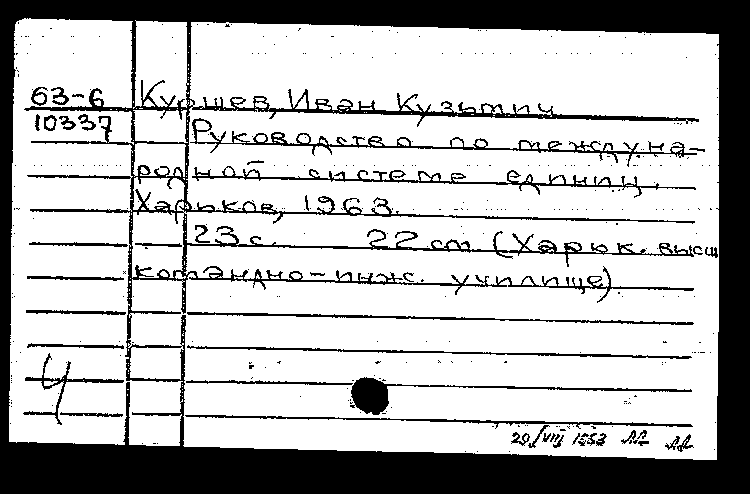 63-6 Куршев, Иван Кузьмич
10337 Руководство по междуна-
родной системе единиц.
Харьков, 1963.
23 с. 22 см (Харьк. высш
командно-инж. училище)
Ч
29/VIII 1963